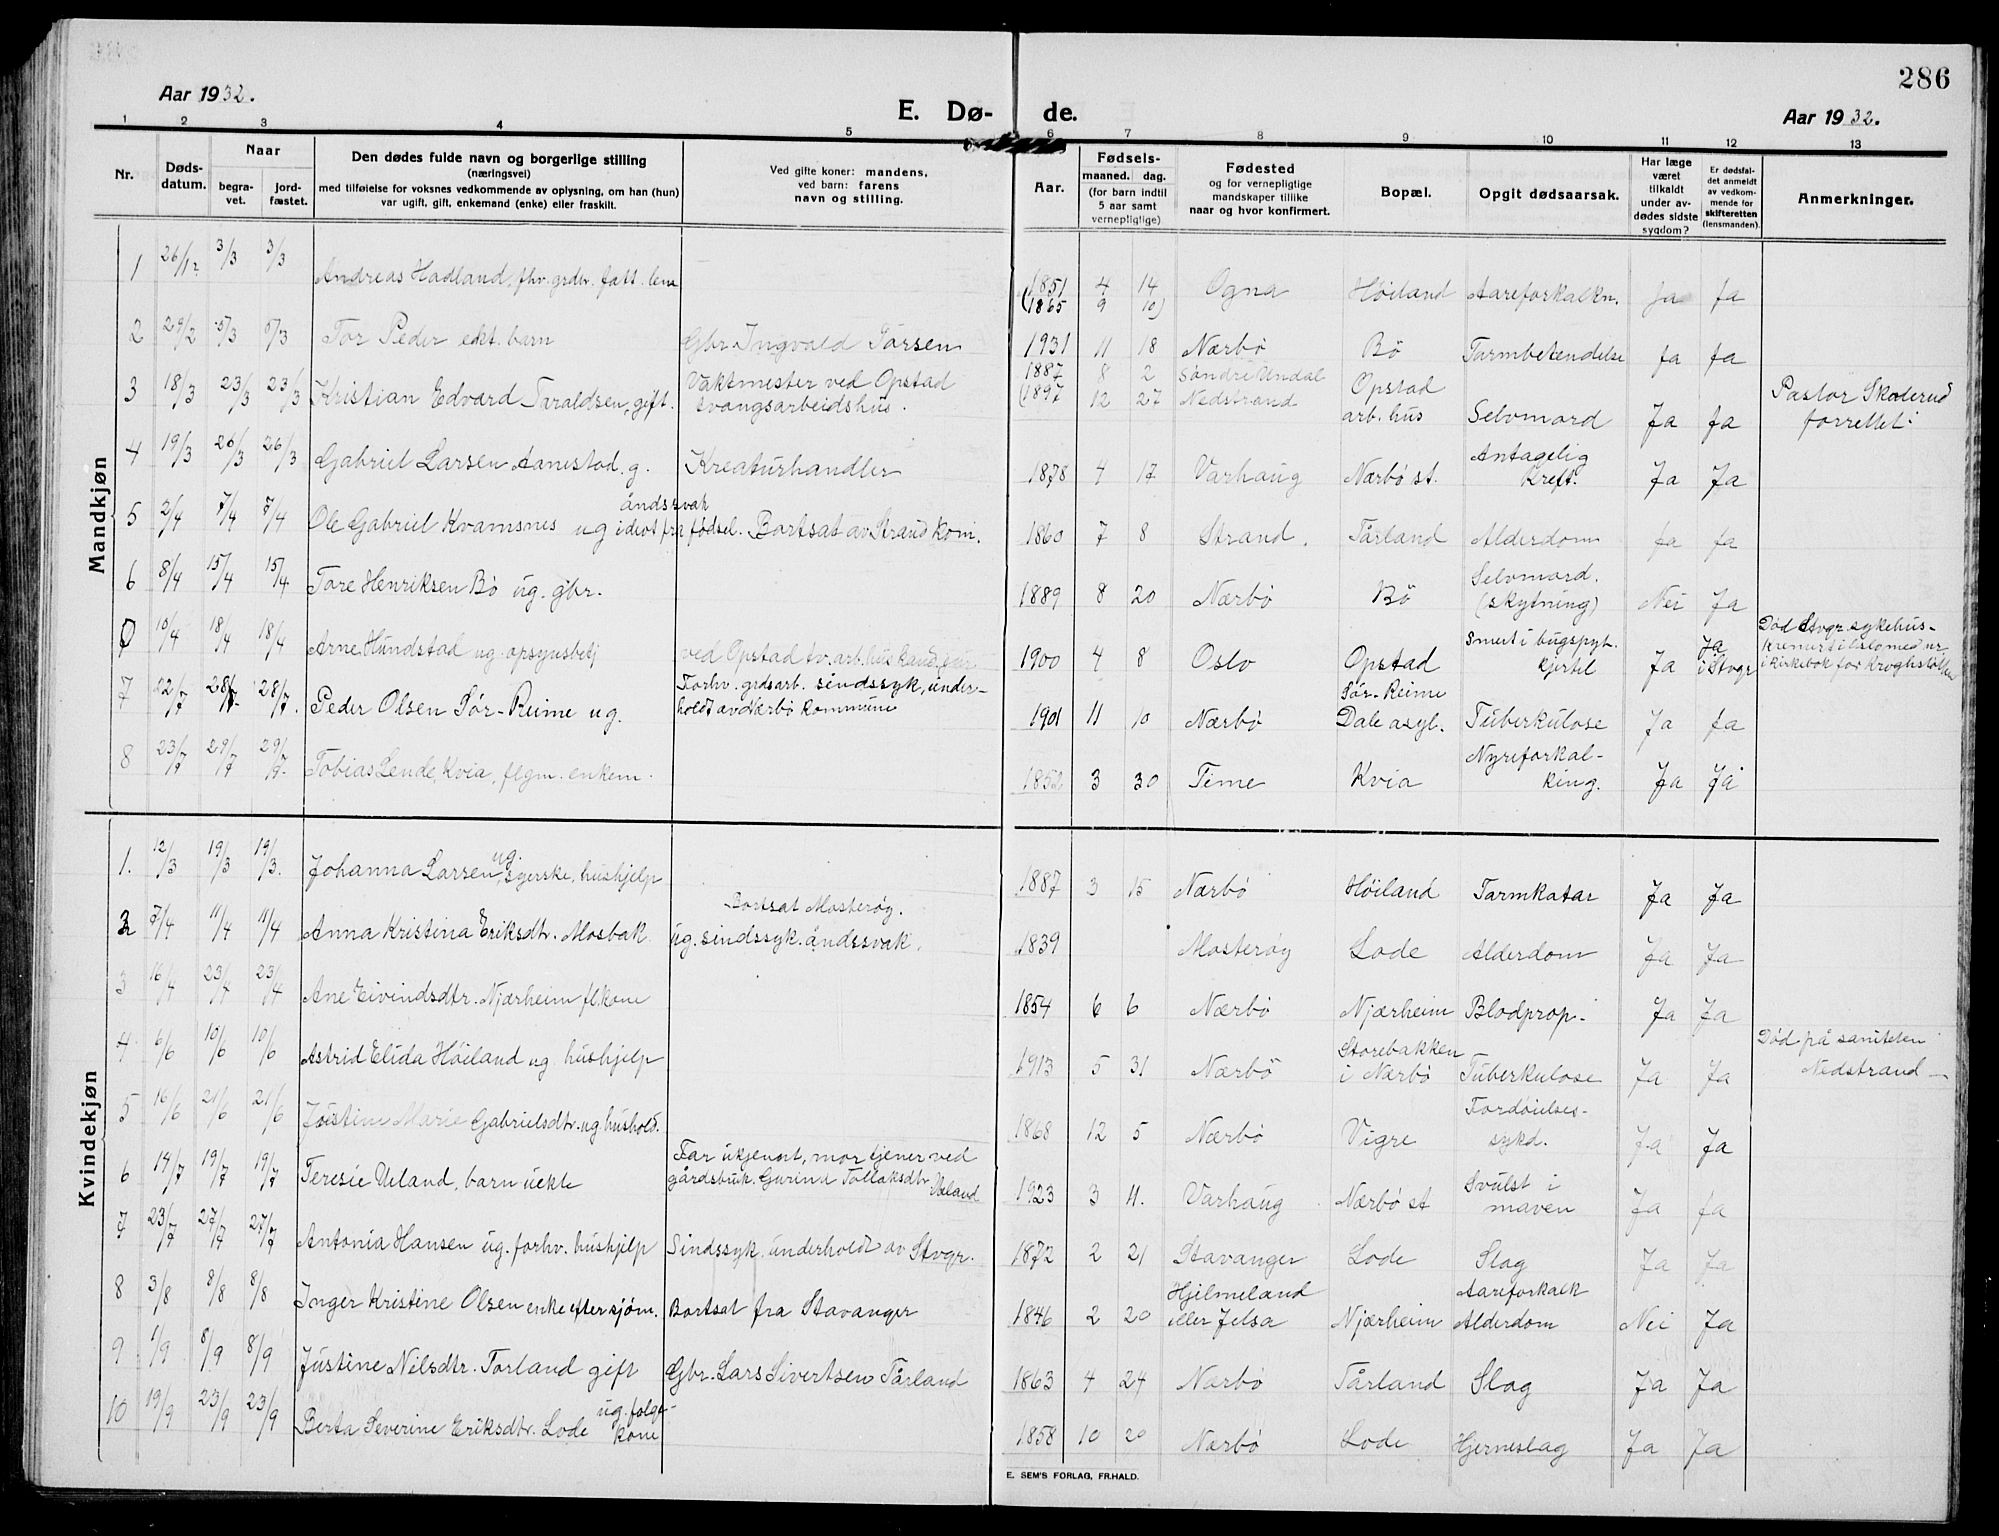 286
Aar 1932.
E. Dø- de.
Aar 1932.
1 2 3 4 5 6 7 8 9 10 11 12 13
Nr.
Døds-
datum.
Naar
begra-
vet.
jord-
fæstet.
Den dødes fulde navn og borgerlige stilling
(næringsvei)
med tilføielse for voksnes vedkommende av oplysning, om han (hun)
var ugift, gift, enkemand (enke) eller fraskilt.
Ved gifte koner: mandens,
ved barn: farens
navn og stilling.
Aar.
Fødsels-
maaned. dag.
(for barn indtil
5 aar samt
vernepligtige)
Fødested
og for vernepligtige
mandskaper tillike
naar og hvor konfirmert.
Bopæl.
Opgit dødsaarsak.
Har læge
været
tilkaldt
under av-
dødes sidste
sygdom?
Er dødsfal-
det anmeldt
av vedkom-
mende for
skifteretten
(lensmanden).
Anmerkninger.
Mandkjøn
1 26/12 3/3 3/3 Andreas Hadland, fhv. grdbr. fatt. lem 1851 4 14 Ogna Høiland Aareforkalkn. Ja Ja
(1865 9 10)
2 29/2 5/3 5/3 Tor Peder ekt. barn Gbr. Ingvald Torsen 1931 11 18 Nærbø Bø Tarmbetendelse Ja Ja
3 18/3 23/3 23/3 Kristian Edvard Taraldsen, gift. Vaktmester ved Opstad
tvangsarbeidshus. 1887 8 2 Søndre Undal Opstad
(1897 12 27 Nedstrand arb. hus Selvmord Ja Ja Pastor Skolerud
forrettet.
4 19/3 26/3 26/3 Gabriel Larsen Aanestad, g. Kreaturhandler 1878 4 17 Varhaug Nærbø st. Antagelig
Kreft. Ja Ja
5 2/4 7/4 7/4 Ole Gabriel Kvamsnes ug åndssvak
idiot fra fødsel. Bortsat av Strand kom. 1860 7 8 Strand. Tårland Alderdom Ja Ja
6 8/4 15/4 15/4 Tore Henriksen Bø ug. gbr. 1889 8 20 Nærbø Bø Selvmord.
(skytning) Nei Ja
0 10/4 18/4 18/4 Arne Hundstad ug. opsynsbetj ved Opstad tv. arb. hus 1900 4 8 Oslo Opstad bugspyt-
kjertil Ja Ja
i Stvgr Død Stvgr sykehus-
7 22/7 28/7 28/7. Peder Olsen Sør-Reime ug. Forhv. grdsarb. sindssyk, under-
holdt av Nærbø kommune 1901 11 10 Nærbø Sør-Reime
Dale asyl. Tuberkulose Ja Ja
8 23/7 29/7 29/7. Tobias Lende, Kvia, flgm. enkem. 1852 3 30 Time Kvia Nyreforkal-
king. Ja Ja
Kvindekjøn
1. 12/3 19/3 19/3. Johanna Larsen, ug.
syerske, hushjelp 1887 3 15 Nærbø Høiland Tarmkatar Ja Ja
2 7/4 11/4 11/4 Anna Kristina Eriksdtr. Mosbak Bortsat Mosterøy.
ug. sindssyk. åndssvak. 1839 Mosterøy Lode Alderdom Ja Ja
3 16/4 23/4 23/4 Ane Eivindsdtr. Njærheim flkone 1854 6 6 Nærbø Njærheim Blodprop- Ja Ja
4 6/6 10/6 10/6 Astrid Elida Høiland ug hushjelp 1913 5 31 Nærbø Storebakken
i Nærbø Tuberkulose Ja Ja Død på saniteten
Nedstrand
5 16/6 21/6 21/6 Marie Gabrielsdtr. ug. hushold. 1868 12 5 Nærbø Vigre Fordøielses-
sykd. Ja Ja
6 14/7 19/7 19/7 Teresie Ueland, barn uekte Far ukjendt, mor tjener ved
gårdsbruk. Gurine Tollaksdtr Ueland 1923 3 11. Varhaug Nærbø st Svulst i
maven Ja Ja
7 23/7 27/7 27/7 Antonia Hansen ug. forhv. hushjelp Sindssyk. underholdt av Stvgr. 1872 2 21 Stavanger Lode Slag Ja Ja
8 3/8 8/8 8/8 Inger Kristine Olsen enke efter sjøm. Bortsat fra Stavanger 1846 2 20 Hjelmeland
eller Jelsa Njærheim Aareforkalk
Alderdom Nei Ja
9 1/9 8/9 8/9 Justine Nilsdtr. Torland gift Gbr. Lars Sivertsen Tårland 1863 4 24 Nærbø Tårland Slag Ja Ja
10 19/9 23/9 23/9 Berta Severine Eriksdtr. Lode ug. folge-
kone 1858 10 20 Nærbø Lode Hjerneslag Ja Ja
E. SEM'S FORLAG, FR.HALD.